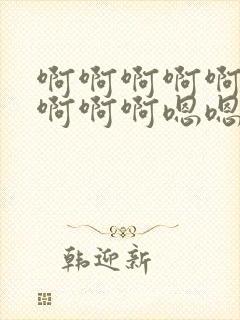 啊啊啊啊啊
啊啊啊嗯嗯
韩迎新